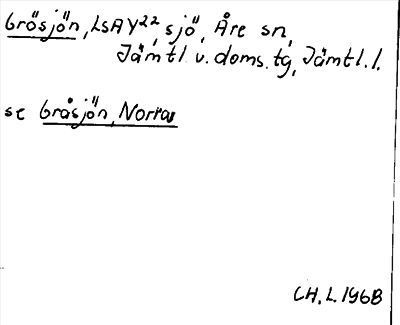 Grösjön, LSAY22, sjö, Åre sn,
Jämtl. v. doms. tg, Jämtl. l.
se Gråsjön, Norra
CH. L. 1968